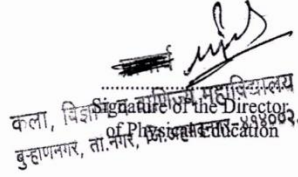 Signature of the Director
of Physical Education
कला, विज्ञान व वाणिज्य महाविद्यालय
बुऱ्हाणनगर, ता.नगर, जि.अहमदनगर-४१४००२.